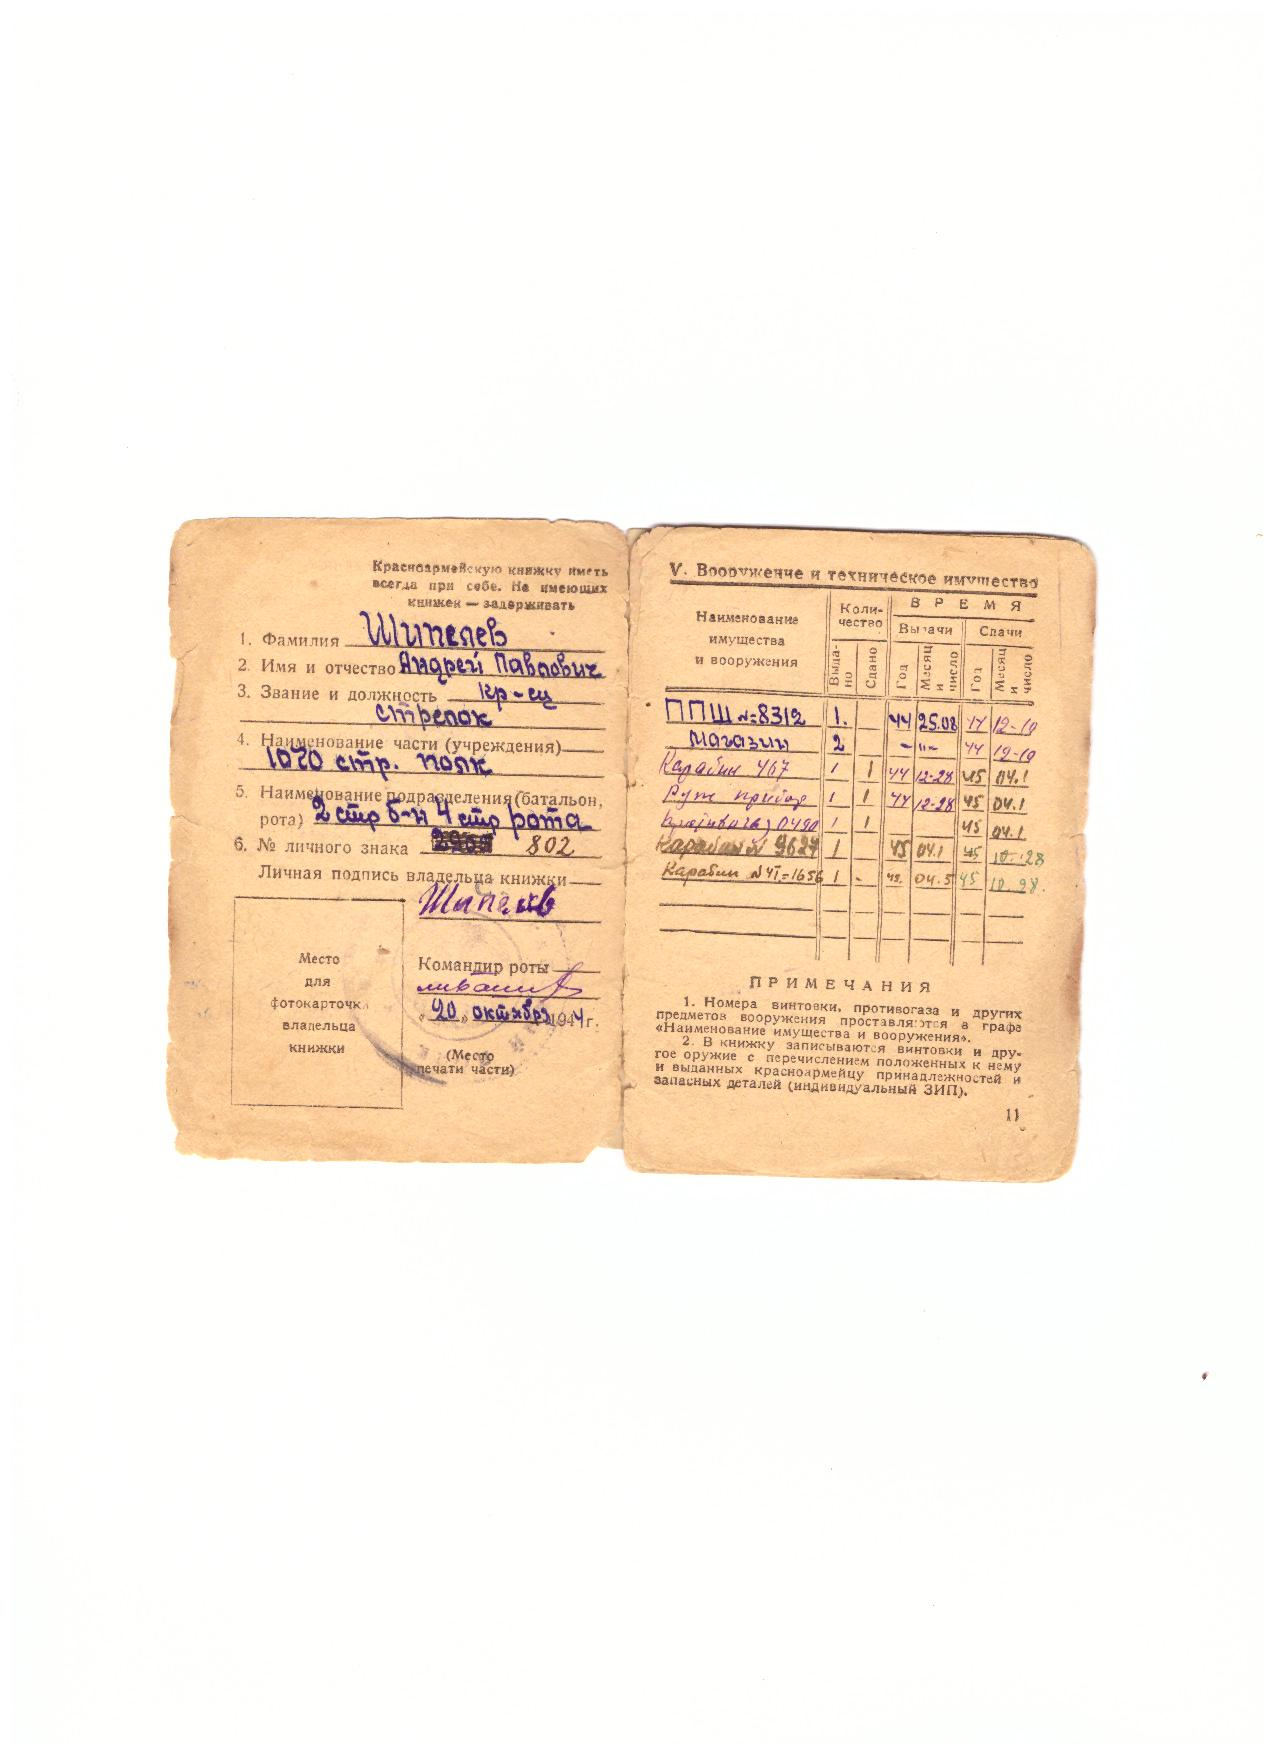 Красноармейскую книжку иметь
всегда при себе. Не имеющих
книжек — задерживать
1. Фамилия Шипелев
2. Имя и отчество Андрей Павлович
3. Звание и должность кр-ец
стрелок
4. Наименование части (учреждения)
1020 стр. полк
5. Наименование подразделения (батальон,
рота) 2 стр б-н 4 стр рота
6. № личного знака 802
Личная подпись владельца книжки
Шипелев
Место
для
фотокарточки
владельца
книжки
Командир роты
«20» октября 1944 г.
(Место
печати части)
V. Вооружение и техническое имущество
Наименование
имущества
и вооружения
Коли-
чество
Выда-
но
Сдано
ВРЕМЯ
Выдачи
Сдачи
Год
Месяц
и
число
Год
Месяц
и
число
ППШ №8312 1. 44 25.08 44 12-10
Магазин 2 -"- 44 12-10
Карабин 467 1 1 44 12-28 45 04.1
Руж прибор 1 1 44 12-28 45 04.1
противогаз 0490 1 1 45 04.1
Карабин № 9627 1 45 04.1 45 10-28
Карабин № ЧГ-1656 1 - 45. 04.5 45 10-28.
ПРИМЕЧАНИЯ
1. Номера винтовки, противогаза и других
предметов вооружения проставляются в графе
«Наименование имущества и вооружения».
2. В книжку записываются винтовки и дру-
гое оружие с перечислением положенных к нему
и выданных красноармейцу принадлежностей и
запасных деталей (индивидуальный ЗИП).
11